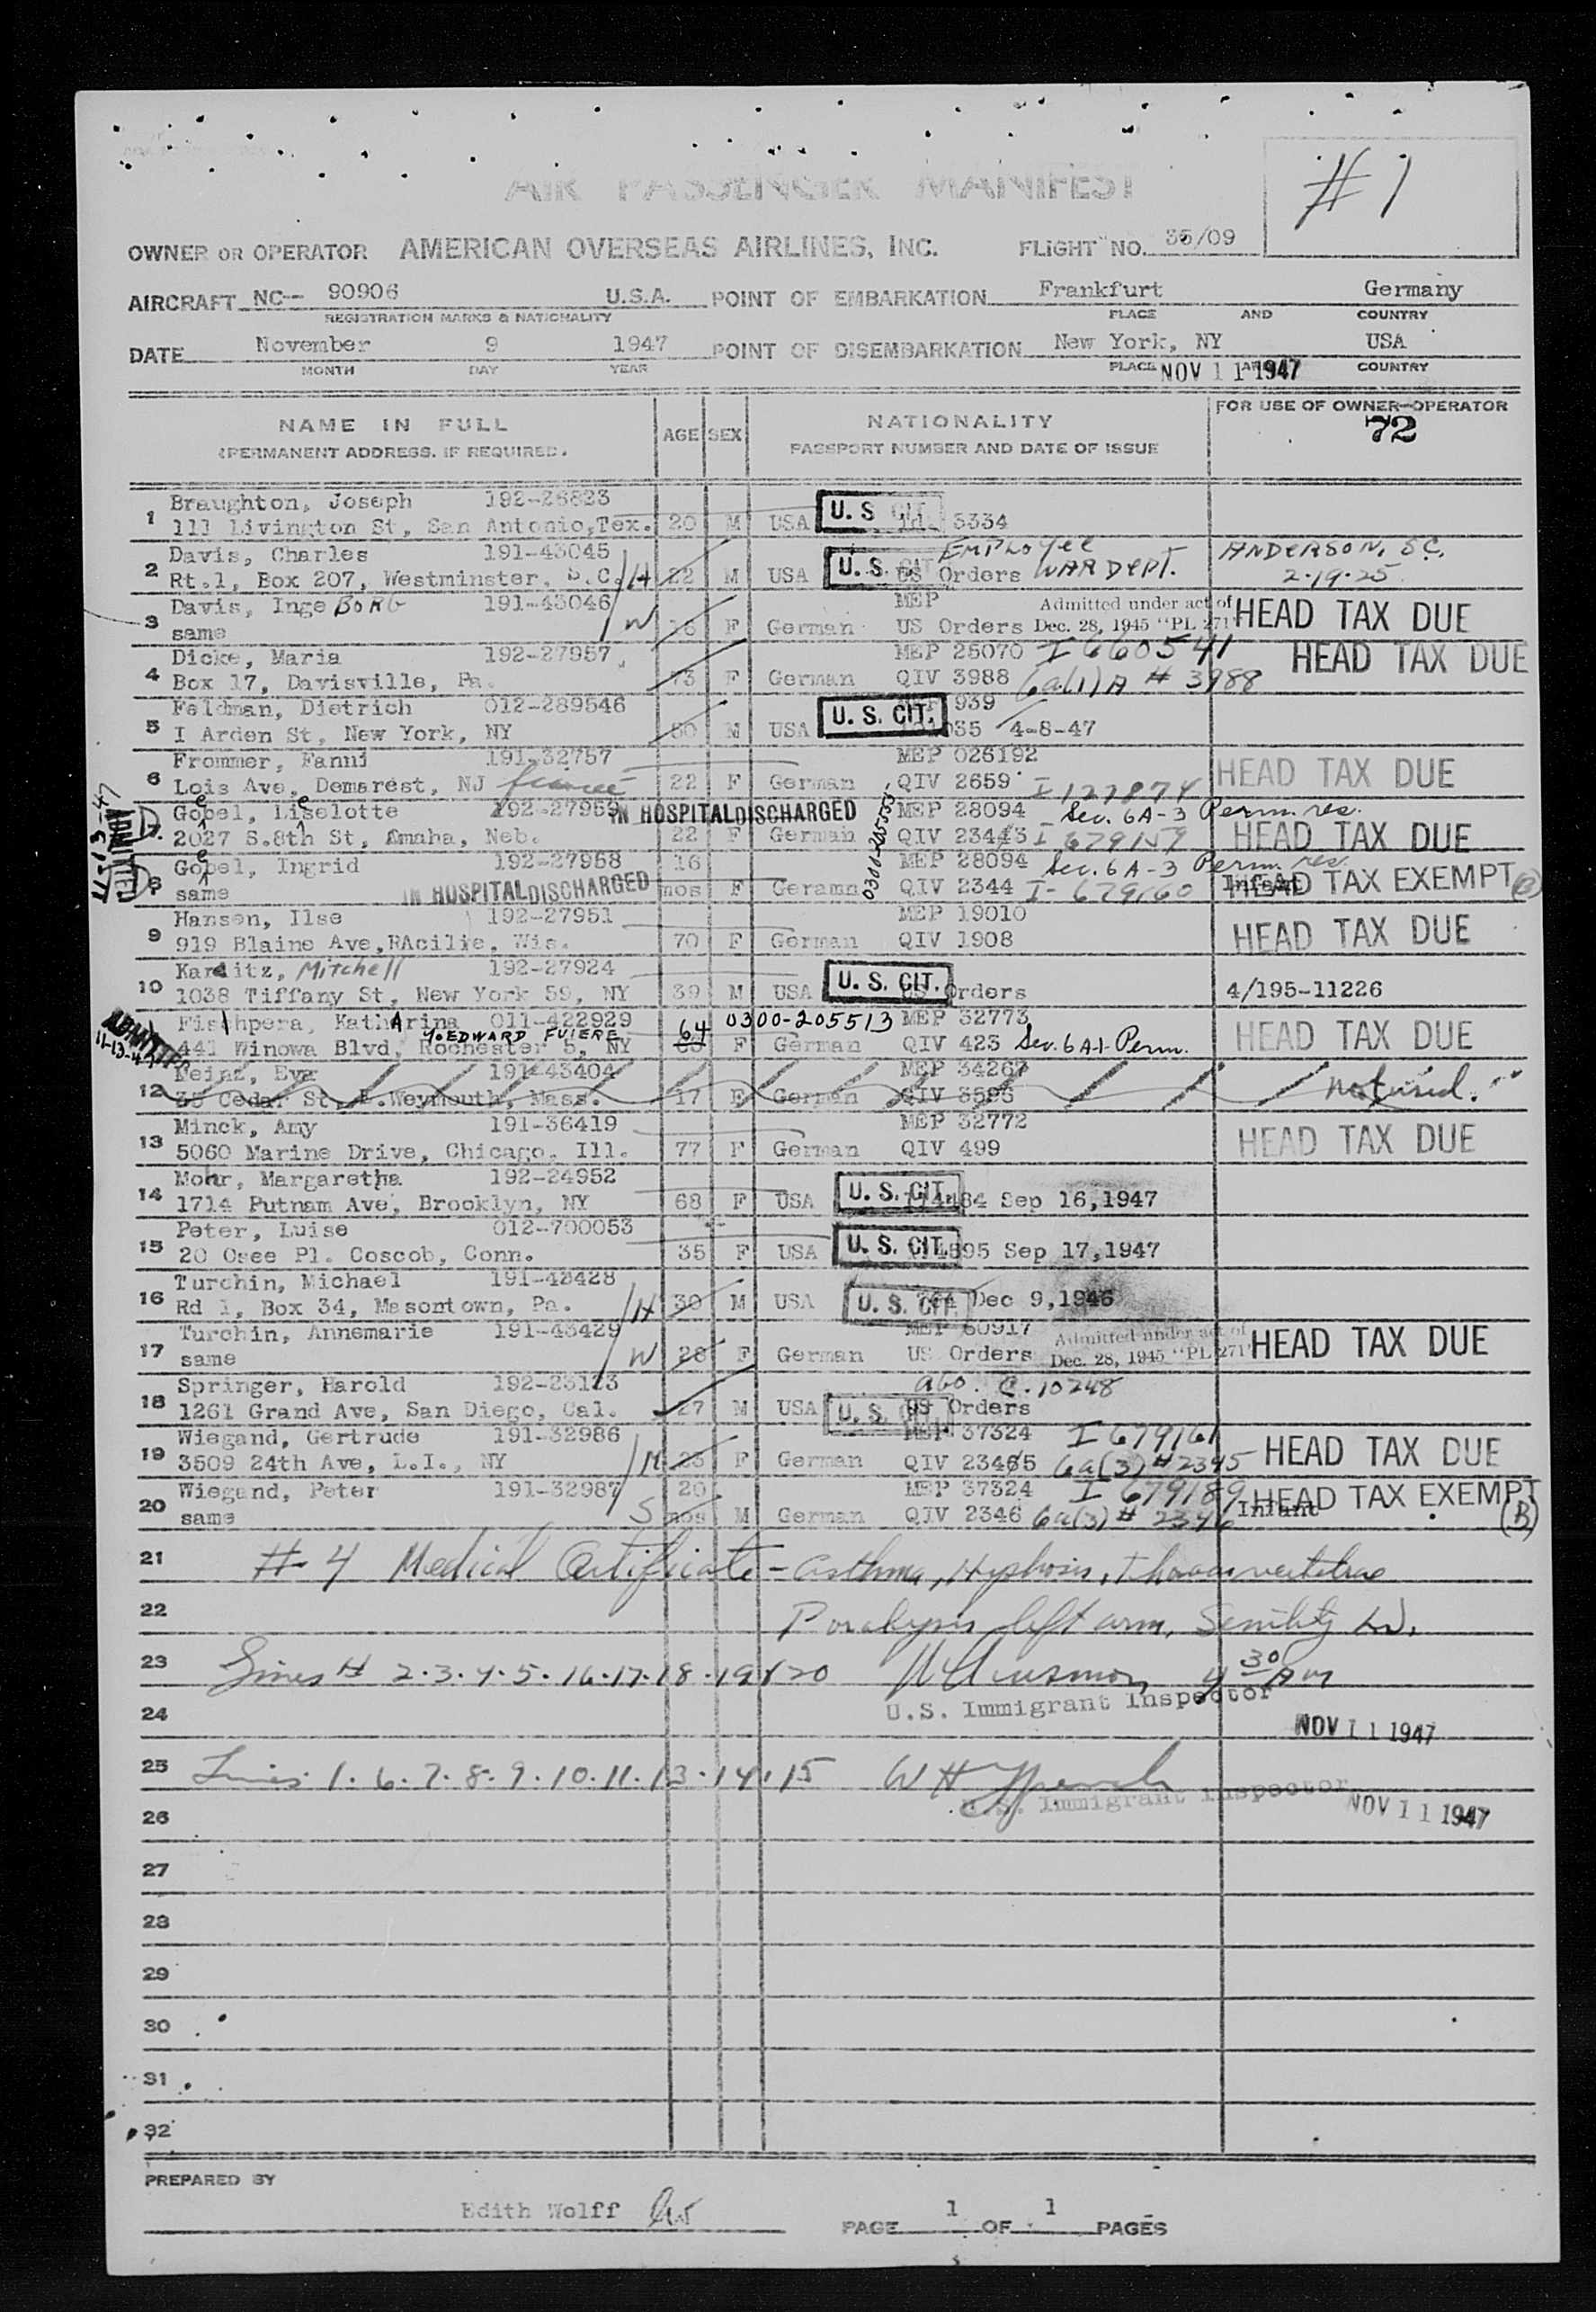 AIR PASSENGER MANIFEST
#1
OWNER OR OPERATOR AMERICAN OVERSEAS AIRLINES, INC. FLIGHT NO. 35/09
AIRCRAFT NC-- 90906 U.S.A. POINT OF EMBARKATION Frankfurt Germany
REGISTRATION MARKS & NATIONALITY PLACE AND COUNTRY
DATE November 9 1947 POINT OF DISEMBARKATION New York, NY USA
MONTH DAY YEAR PLACE NOV 11 1947 COUNTRY
NAME IN FULL AGE SEX NATIONALITY FOR USE OF OWNER-OPERATOR
(PERMANENT ADDRESS, IF REQUIRED. PASSPORT NUMBER AND DATE OF ISSUE 72
Braughton, Joseph 192-26823
1 111 Livington St, San Antonio, Tex. 20 M USA U. S. CIT. 5334
Davis, Charles 191-43045 EMPLOYEE ANDERSON, SC.
2 Rt.1, Box 207, Westminster, S.C. H 22 M USA U. S. CIT. US Orders WAR DEPT. 2-19-25
Davis, Inge BORG 191-43046 MEP Admitted under act of
3 same W 16 F German US Orders Dec. 28, 1945 "PL 271" HEAD TAX DUE
Dicke, Maria 192-27957 MEP 25070 I 660541
4 Box 17, Davisville, Pa. 73 F German QIV 3988 6a(1) A # 3988 HEAD TAX DUE
Feldman, Dietrich 012-289546 939
5 I Arden St, New York, NY 50 M USA U. S. CIT. 035 4-8-47
Frommer, Fanni 191-32757 MEP 026192
6 Lois Ave, Demarest, NJ fiancee 22 F German QIV 2659 I 127874 HEAD TAX DUE
ADMITTED 11-13-47
Goebel, Lieselotte 192-27959 IN HOSPITAL DISCHARGED MEP 28094 Sec. 6A-3 Perm. res.
7 2027 S.8th St, Amaha, Neb. 22 F German QIV 2343 I 679159 HEAD TAX DUE
Goebel, Ingrid 192-27958 16 MEP 28094 Sec. 6A-3 Perm. res.
8 same IN HOSPITAL DISCHARGED mos F Geramn QIV 2344 I-679160 Infant HEAD TAX EXEMPT
Hansen, Ilse 192-27951 MEP 19010
9 919 Blaine Ave, RAcilie, Wis. 70 F German QIV 1908 HEAD TAX DUE
Karlitz, Mitchell 192-27924
10 1038 Tiffany St, New York 59, NY 39 M USA U. S. CIT. US Orders 4/195-11226
ADMITTED 11-13-47
Fischpera, Katharina 011-422929 64 0300-205513 MEP 32773
441 Winowa Blvd, Rochester 5, NY F German QIV 423 Sec. 6A-1 Perm. HEAD TAX DUE
Meinz, Eva 191-43404 MEP 34267
12 35 Cedar St, E.Weymouth, Mass. 17 F German QIV 3595
Minck, Amy 191-36419 MEP 32772
13 5060 Marine Drive, Chicago, Ill. 77 F German QIV 499 HEAD TAX DUE
Mohr, Margaretha 192-24952
14 1714 Putnam Ave, Brooklyn, NY 68 F USA U. S. CIT. Sep 16,1947
Peter, Luise 012-700053
15 20 Osee Pl. Coscob, Conn. 35 F USA U. S. CIT. Sep 17,1947
Turchin, Michael 191-43428
16 Rd 1, Box 34, Masontown, Pa. H 30 M USA U. S. CIT. Dec 9,1946
Turchin, Annemarie 191-43429 MEP 60917 Admitted under act of
17 same W 28 F German US Orders Dec. 28, 1945 "PL 271" HEAD TAX DUE
Springer, Harold 192-23113 AGO. C. 10248
18 1261 Grand Ave, San Diego, Cal. 27 M USA U. S. CIT. US Orders
Wiegand, Gertrude 191-32986 MEP 37324 I 679161
19 3509 24th Ave, L.I., NY M 23 F German QIV 2345 6a(3) # 2345 HEAD TAX DUE
Wiegand, Peter 191-32987 20 MEP 37324 I 679189
20 same S mos M German QIV 2346 6a(3) # 2346 Infant HEAD TAX EXEMPT (B)
21 #4 Medical Certificate - Asthma,
22 Paralysis left arm, Senility
23 Lines # 2.3.4.5.16.17.18.19 & 20 4 30 AM
U.S. Immigrant Inspector
24 NOV 11 1947
25 Lines 1.6.7.8.9.10.11.13.14.15
U.S. Immigrant Inspector
26 NOV 11 1947
27
28
29
30
31
32
PREPARED BY
Edith Wolff
PAGE 1 OF 1 PAGES